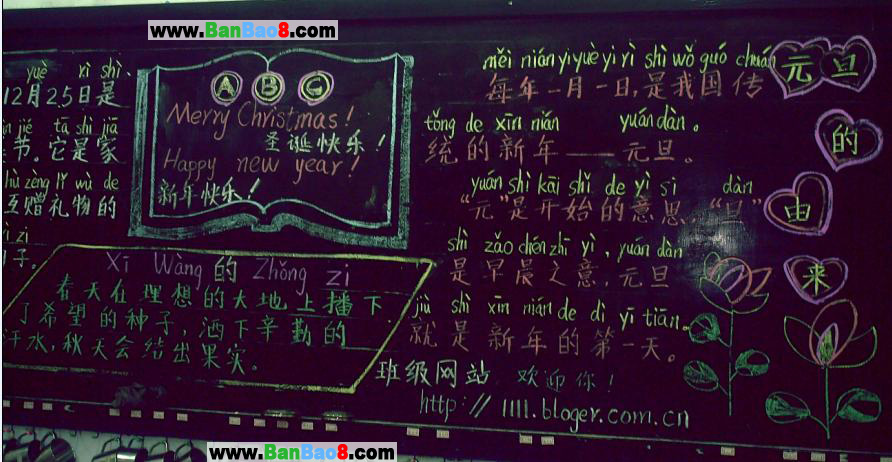 www.BanBao8.com
yuè rì shì
12月25日是
jié tā shì jiā
节。它是家
hù zèng lǐ wù de
互赠礼物的
zi
子。
A B C
Merry Christmas!
圣诞快乐!
Happy new year!
新年快乐!
Xī Wàng 的 Zhǒng zi
春天在理想的大地上播下
了希望的种子,洒下辛勤的
汗水,秋天会结出果实。
měi nián yī yuè yī rì shì wǒ guó chuán
每年一月一日,是我国传
tǒng de xīn nián yuándàn。
统的新年——元旦。
yuán shì kāi shǐ de yì si dàn
“元”是开始的意思,“旦”
shì zǎo chén zhī yì,yuán dàn
是早晨之意,元旦
jiù shì xīn nián de dì yī tiān。
就是新年的第一天。
元旦
的
由
来
班级网站 欢迎你!
http://1111.bloger.com.cn
www.BanBao8.com